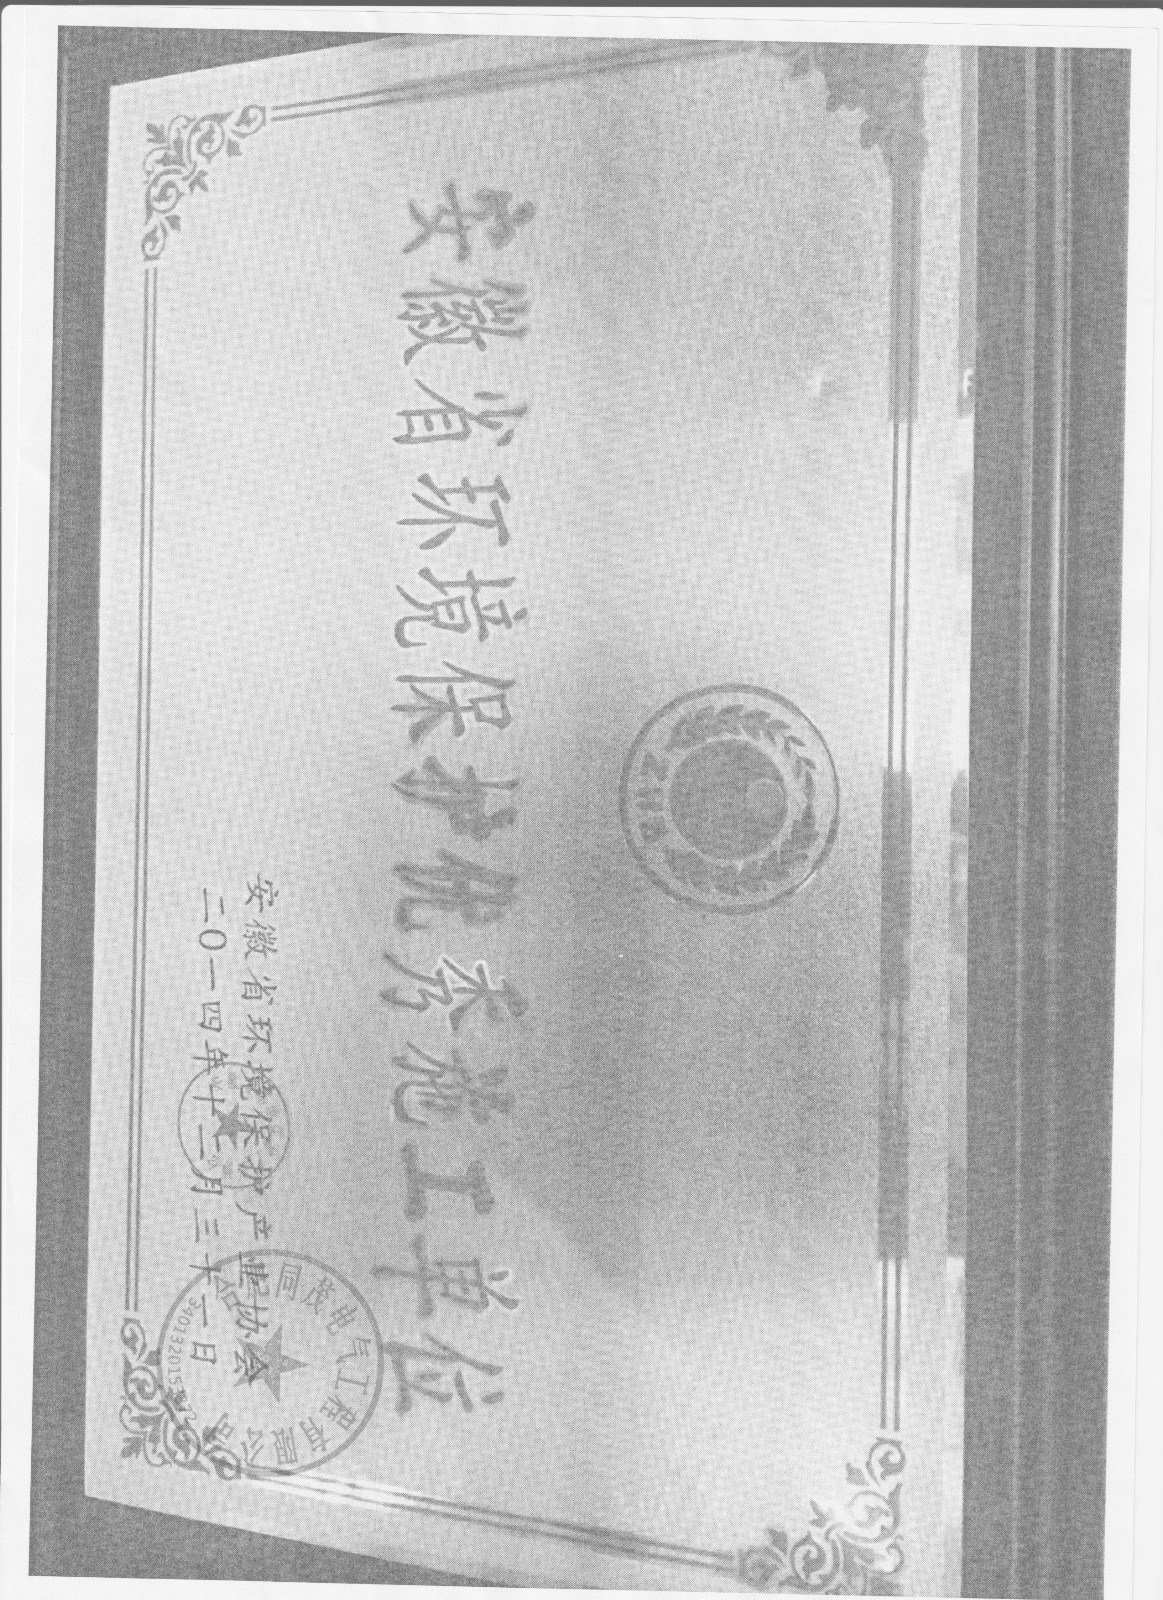 ZHB
安徽省环境保护优秀施工单位
安徽省环境保护产业协会
二〇一四年十二月三十一日
同茂电气工程有限公司